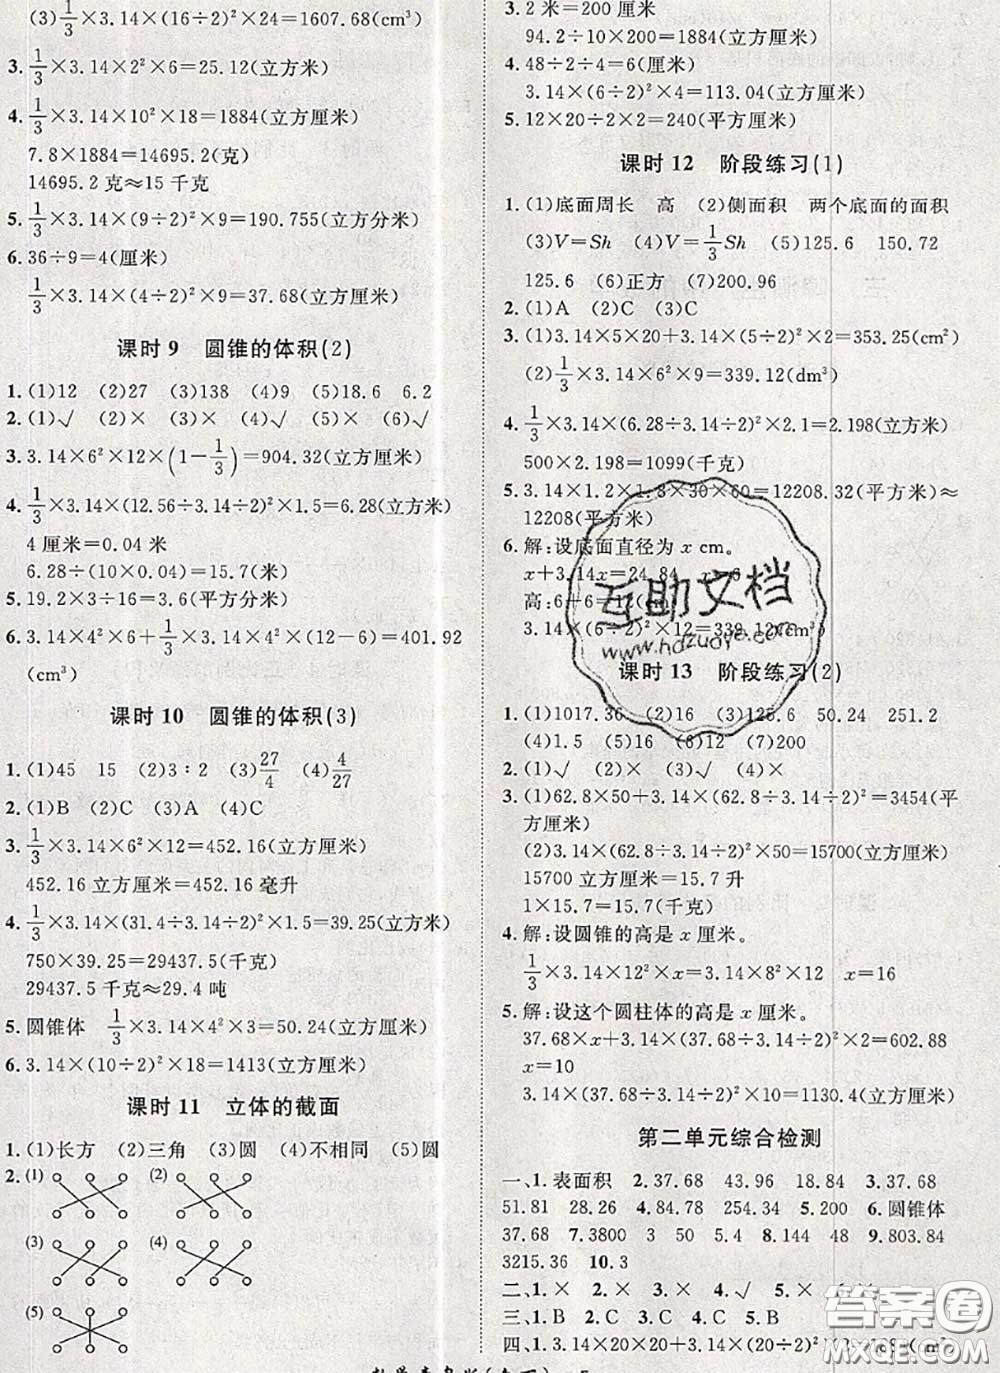 (3)1/3×3.14×(16÷2)²×24=1607.68(cm³)
3. 1/3×3.14×2²×6=25.12(立方米)
4. 1/3×3.14×10²×18=1884(立方厘米)
7.8×1884=14695.2(克)
14695.2克≈15千克
5. 1/3×3.14×(9÷2)²×9=190.755(立方分米)
6. 36÷9=4(厘米)
1/3×3.14×(4÷2)²×9=37.68(立方厘米)
课时9 圆锥的体积(2)
1. (1)12 (2)27 (3)138 (4)9 (5)18.6 6.2
2. (1)√ (2)× (3)× (4)√ (5)× (6)√
3. 3.14×6²×12×(1-1/3)=904.32(立方厘米)
4. 1/3×3.14×(12.56÷3.14÷2)²×1.5=6.28(立方米)
4厘米=0.04米
6.28÷(10×0.04)=15.7(米)
5. 19.2×3÷16=3.6(平方分米)
6. 3.14×4²×6+1/3×3.14×4²×(12-6)=401.92
(cm³)
课时10 圆锥的体积(3)
1. (1)45 15 (2)3∶2 (3)27/4 (4)4/27
2. (1)B (2)C (3)A (4)C
3. 1/3×3.14×6²×12=452.16(立方厘米)
452.16立方厘米=452.16毫升
4. 1/3×3.14×(31.4÷3.14÷2)²×1.5=39.25(立方米)
750×39.25=29437.5(千克)
29437.5千克≈29.4吨
5. 圆锥体 1/3×3.14×4²×3=50.24(立方厘米)
6. 3.14×(10÷2)²×18=1413(立方厘米)
课时11 立体的截面
1. (1)长方 (2)三角 (3)圆 (4)不相同 (5)圆
2. (1) (2)
(3) (4)
(5)
3. 2米=200厘米
94.2÷10×200=1884(立方厘米)
4. 48÷2÷4=6(厘米)
3.14×(6÷2)²×4=113.04(立方厘米)
5. 12×20÷2×2=240(平方厘米)
课时12 阶段练习(1)
1. (1)底面周长 高 (2)侧面积 两个底面的面积
(3)V=Sh (4)V=1/3Sh (5)125.6 150.72
125.6 (6)正方 (7)200.96
2. (1)A (2)C (3)C
3. (1)3.14×5×20+3.14×(5÷2)²×2=353.25(cm²)
(2)1/3×3.14×6²×9=339.12(dm³)
4. 1/3×3.14×(6.28÷3.14÷2)²×2.1=2.198(立方米)
500×2.198=1099(千克)
5. 3.14×1.2×1.8×30×60=12208.32(平方米)≈
12208(平方米)
6. 解:设底面直径为x cm。
x+3.14x=24.84 x=6
高:6+6=12(cm)
3.14×(6÷2)²×12=339.12(cm³)
互助文档
www.hdzuoye.com
课时13 阶段练习(2)
1. (1)1017.36 (2)16 (3)125.6 50.24 251.2
(4)1.5 (5)16 (6)12 (7)200
2. (1)√ (2)× (3)√ (4)×
3. (1)62.8×50+3.14×(62.8÷3.14÷2)²=3454(平
方厘米)
(2)3.14×(62.8÷3.14÷2)²×50=15700(立方厘米)
15700立方厘米=15.7升
1×15.7=15.7(千克)
4. 解:设圆锥的高是x厘米。
1/3×3.14×12²×x=3.14×8²×12 x=16
5. 解:设这个圆柱体的高是x厘米。
37.68×x+3.14×(37.68÷3.14÷2)²×2=602.88
x=10
3.14×(37.68÷3.14÷2)²×10=1130.4(立方厘米)
第二单元综合检测
一、1.表面积 2.37.68 43.96 18.84 3.37.68
51.81 28.26 4.84.78 254.34 5.200 6.圆锥体
37.68 7.3800 3 50 5.4 8.48 144 9.803.84
3215.36 10.3
二、1.× 2.× 3.× 4.√ 5.×
三、1.B 2.C 3.C 4.B 5.B
四、1.3.14×20×20+3.14×(20÷2)²×2=1884(cm²)
答案卷